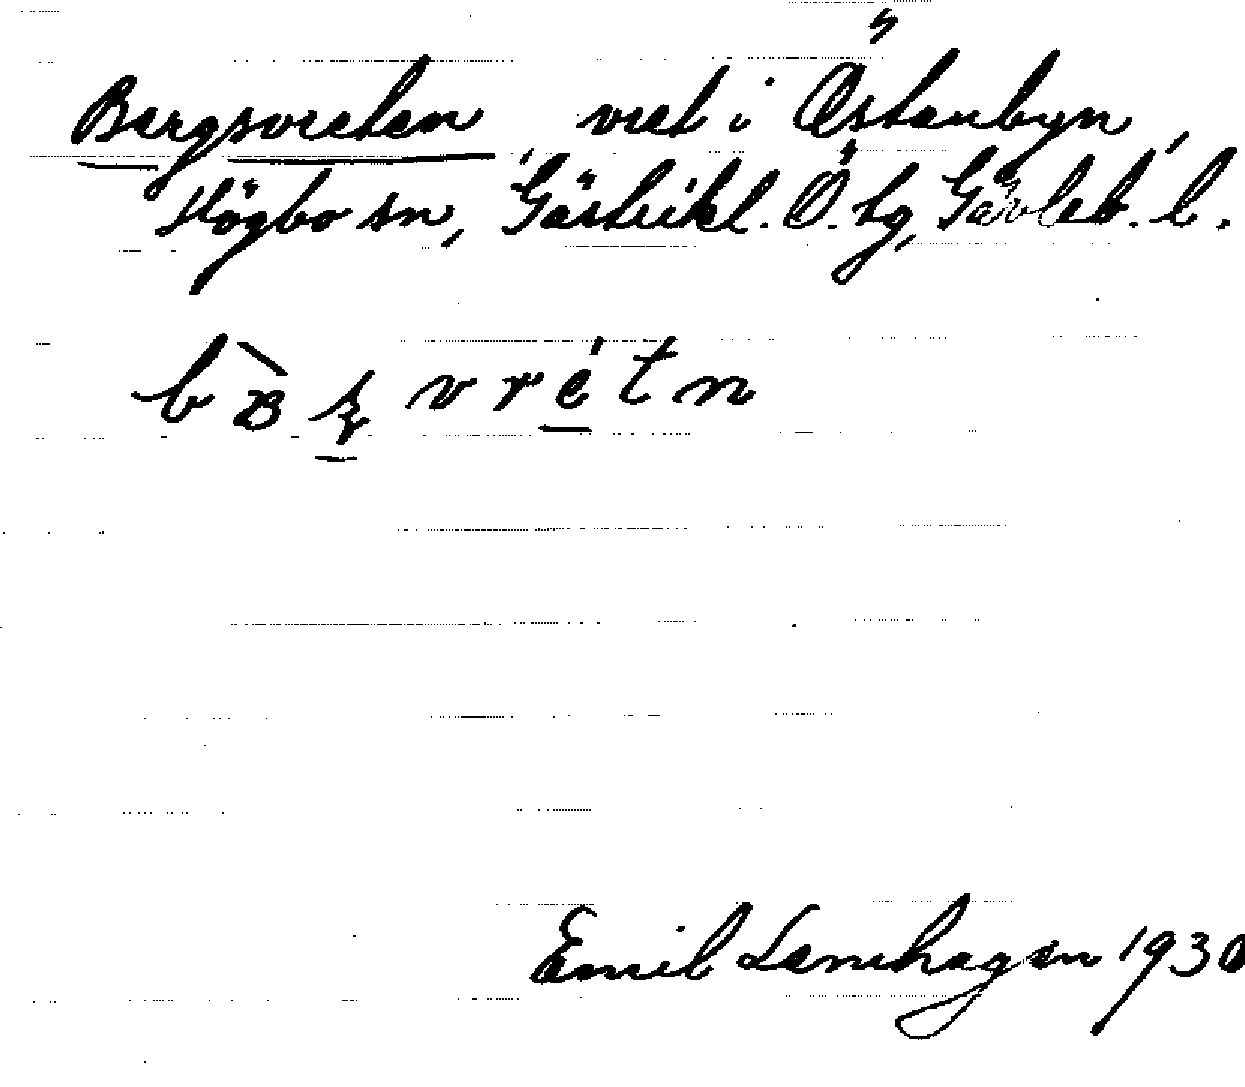 Bergsvreten vret i Östanbyn,
Högbo sn, Gästrikl. Ö. tg, Gävleb. l.
Emil Lennhagen 1930